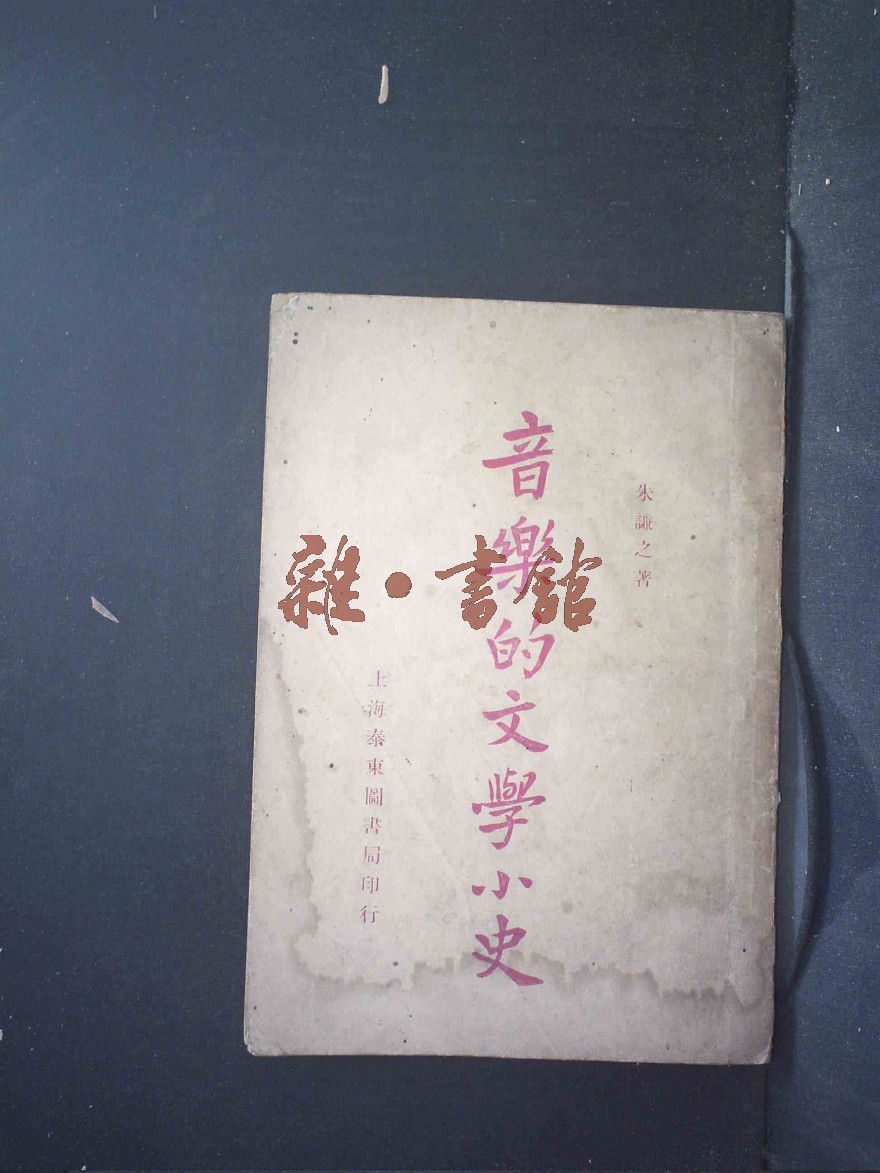 朱謙之著
音樂的文學小史
上海泰東圖書局印行
雜·書館